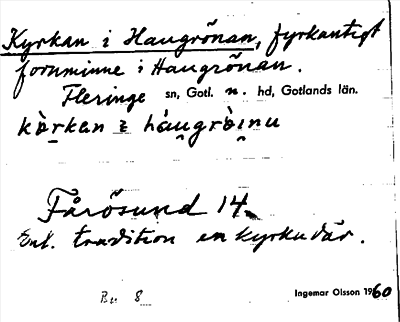 Kyrkan i Haugrönan, fyrkantigt
fornminne i Haugrönan.
Fleringe sn, Gotl. n. hd, Gotlands län.
kàrkan i háugròinu
Fårösund 14
Enl. tradition en kyrka där.
Bu 8
Ingemar Olsson 1960